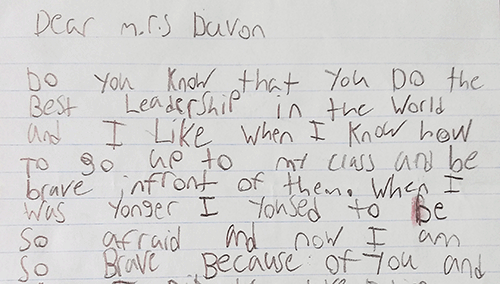 Dear m.r.s Duvon
Do You Know that You DO the
Best Leadership in the World
and I Like when I Know how
To go up to my class and be
brave infront of them. When I
was yonger I yoused to Be
so afraid and now I am
so Brave Because of You and